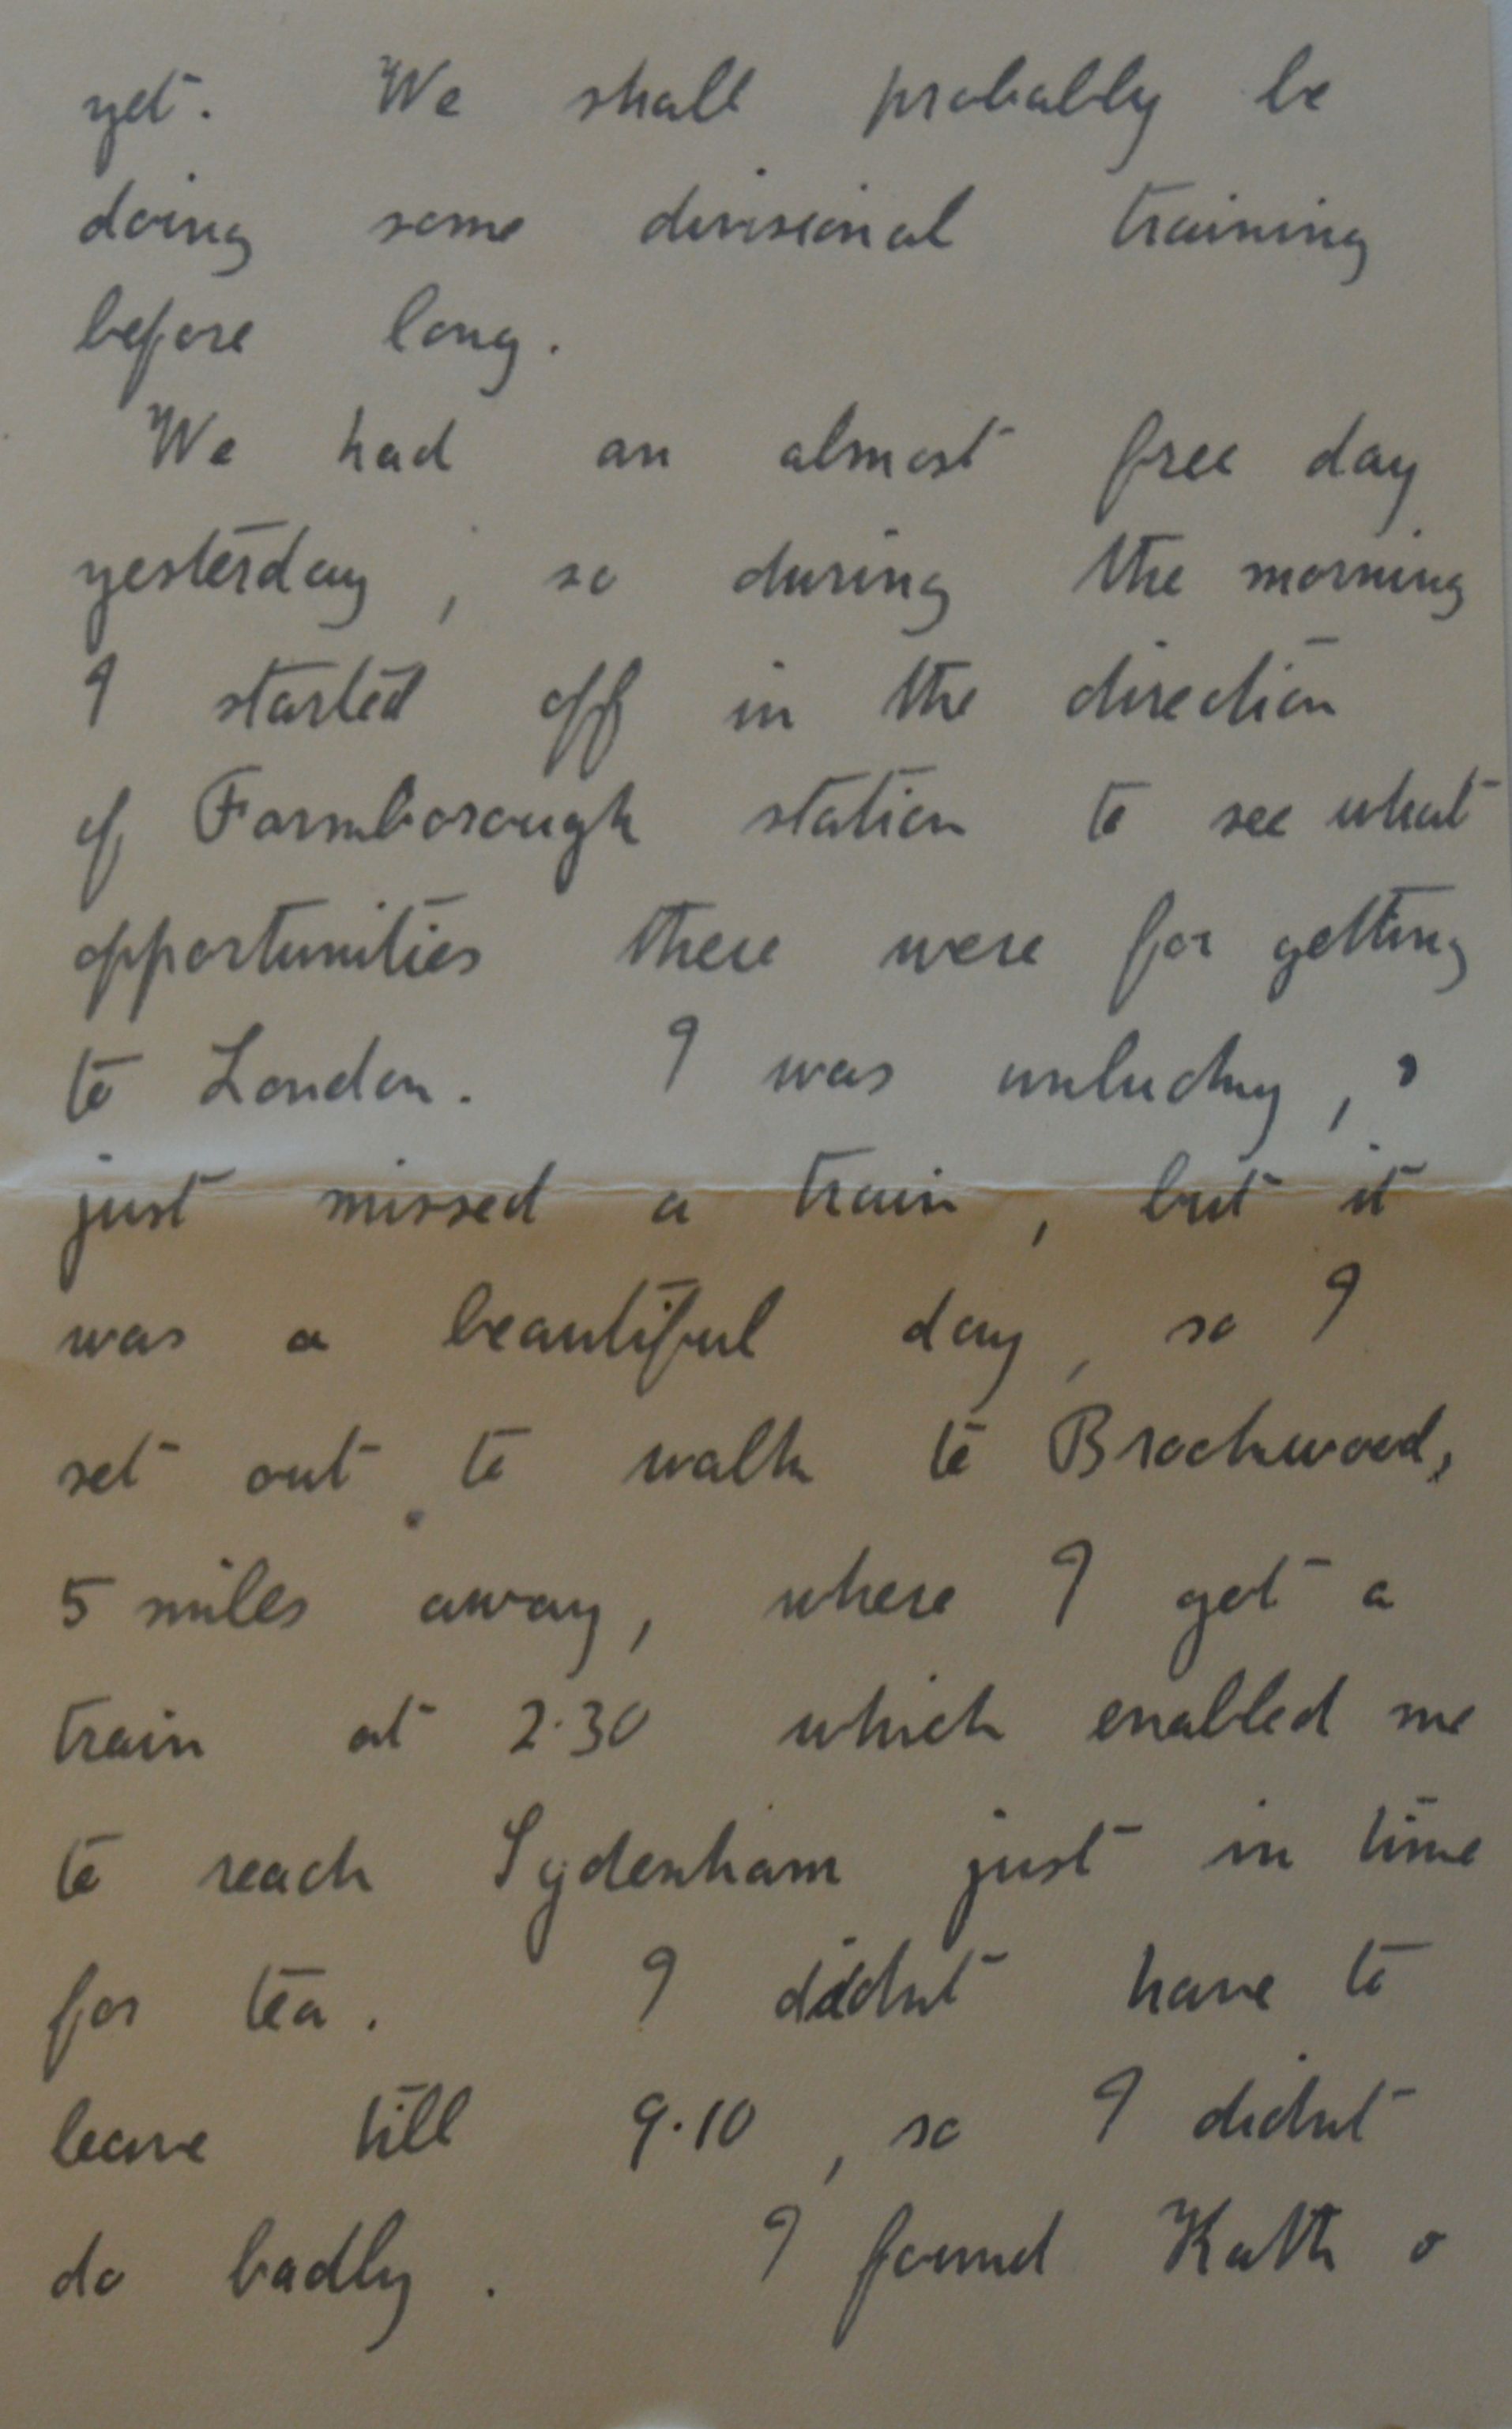 yet. We shall probably be
doing some divisional training
before long.
We had an almost free day
yesterday, so during the morning
I started off in the direction
of Farnborough station to see what
opportunities there were for getting
to London. I was unlucky, &
just missed a train, but it
was a beautiful day, so I
set out to walk to Brookwood,
5 miles away, where I got a
train at 2.30 which enabled me
to reach Sydenham just in time
for tea. I didnt have to
leave till 9.10, so I didnt
do badly. I found Kath &